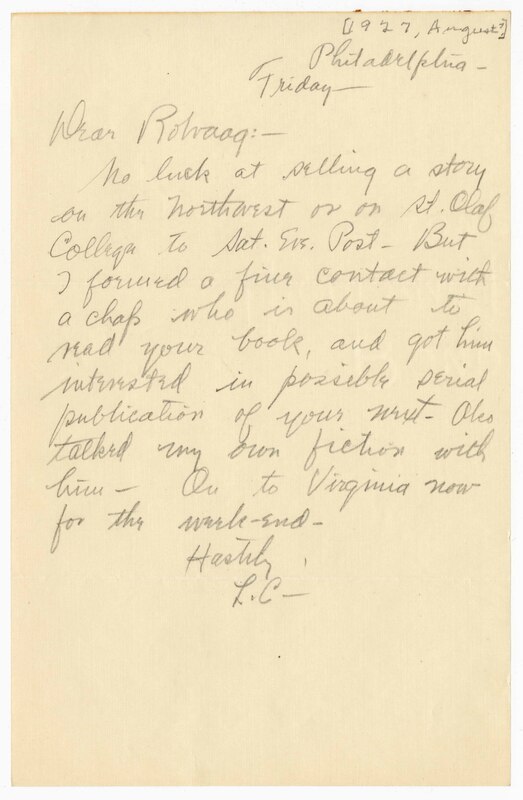 [1927, August?]
Philadelphia –
Friday –
Dear Rolvaag:–
No luck at selling a story
on the Northwest or on St. Olaf
College to Sat. Eve. Post – But
I formed a fine contact with
a chap who is about to
read your book, and got him
interested in possible serial
publication of your next – Also
talked my own fiction with
him – On to Virginia now
for the week-end –
Hastily,
L.C –